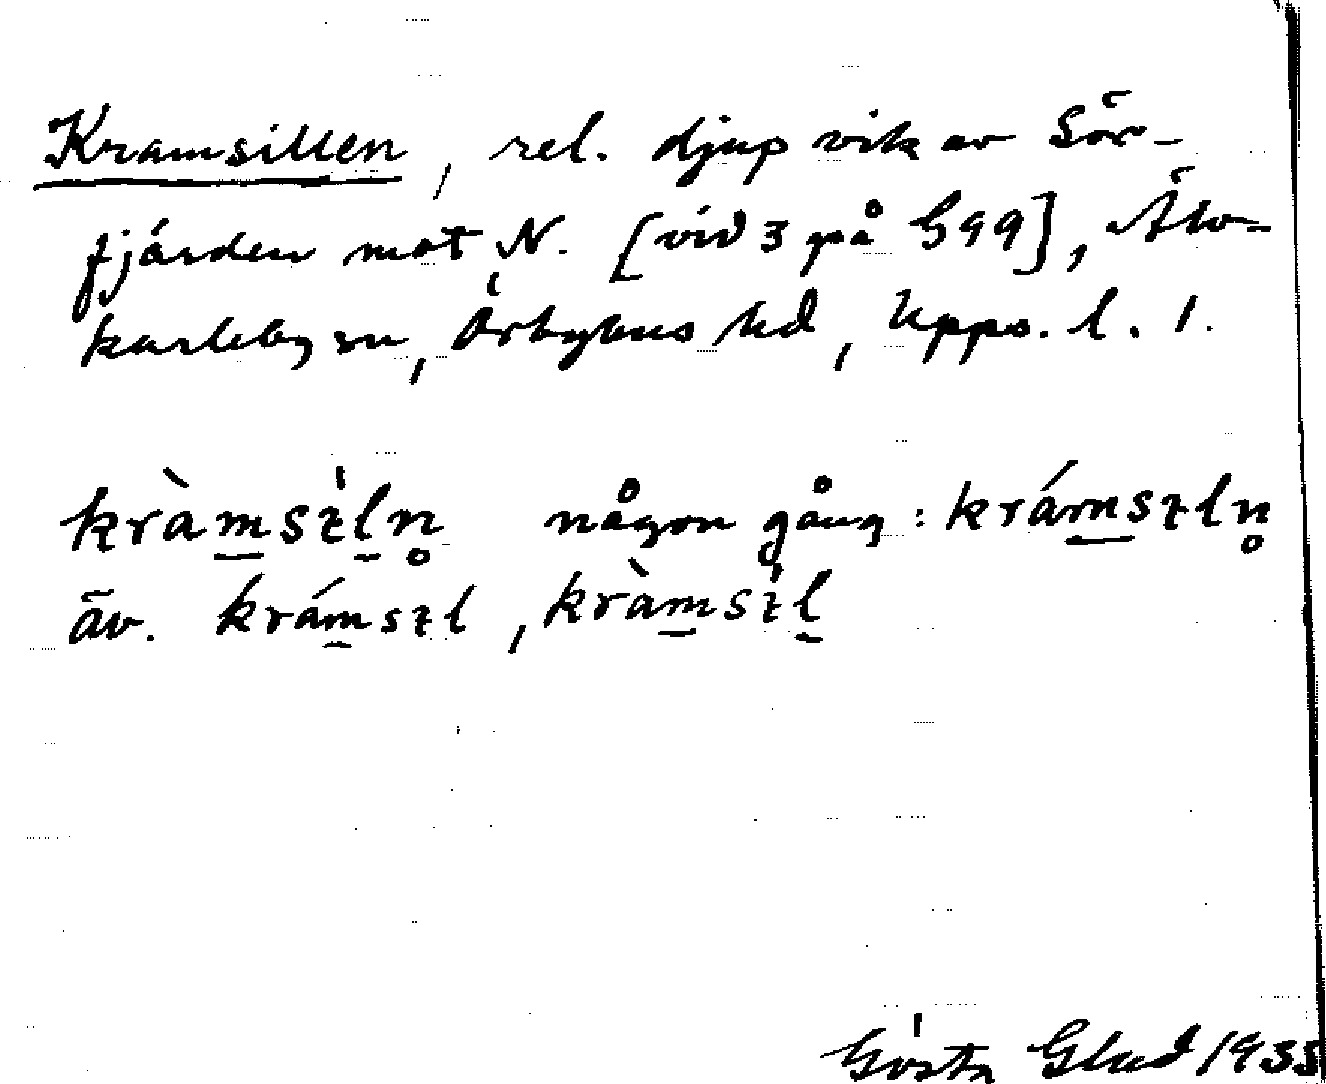 Kramsillen, rel. djup vik av Sör-
fjärden mot N. [vid 3 på G99], Älv-
karleby sn, Örbyhus hd, Upps. l. 1.
kràmsìln̥ någon gång: krámsıln̥
äv. krámsıl, kràmsìl
Gösta Glad 1935